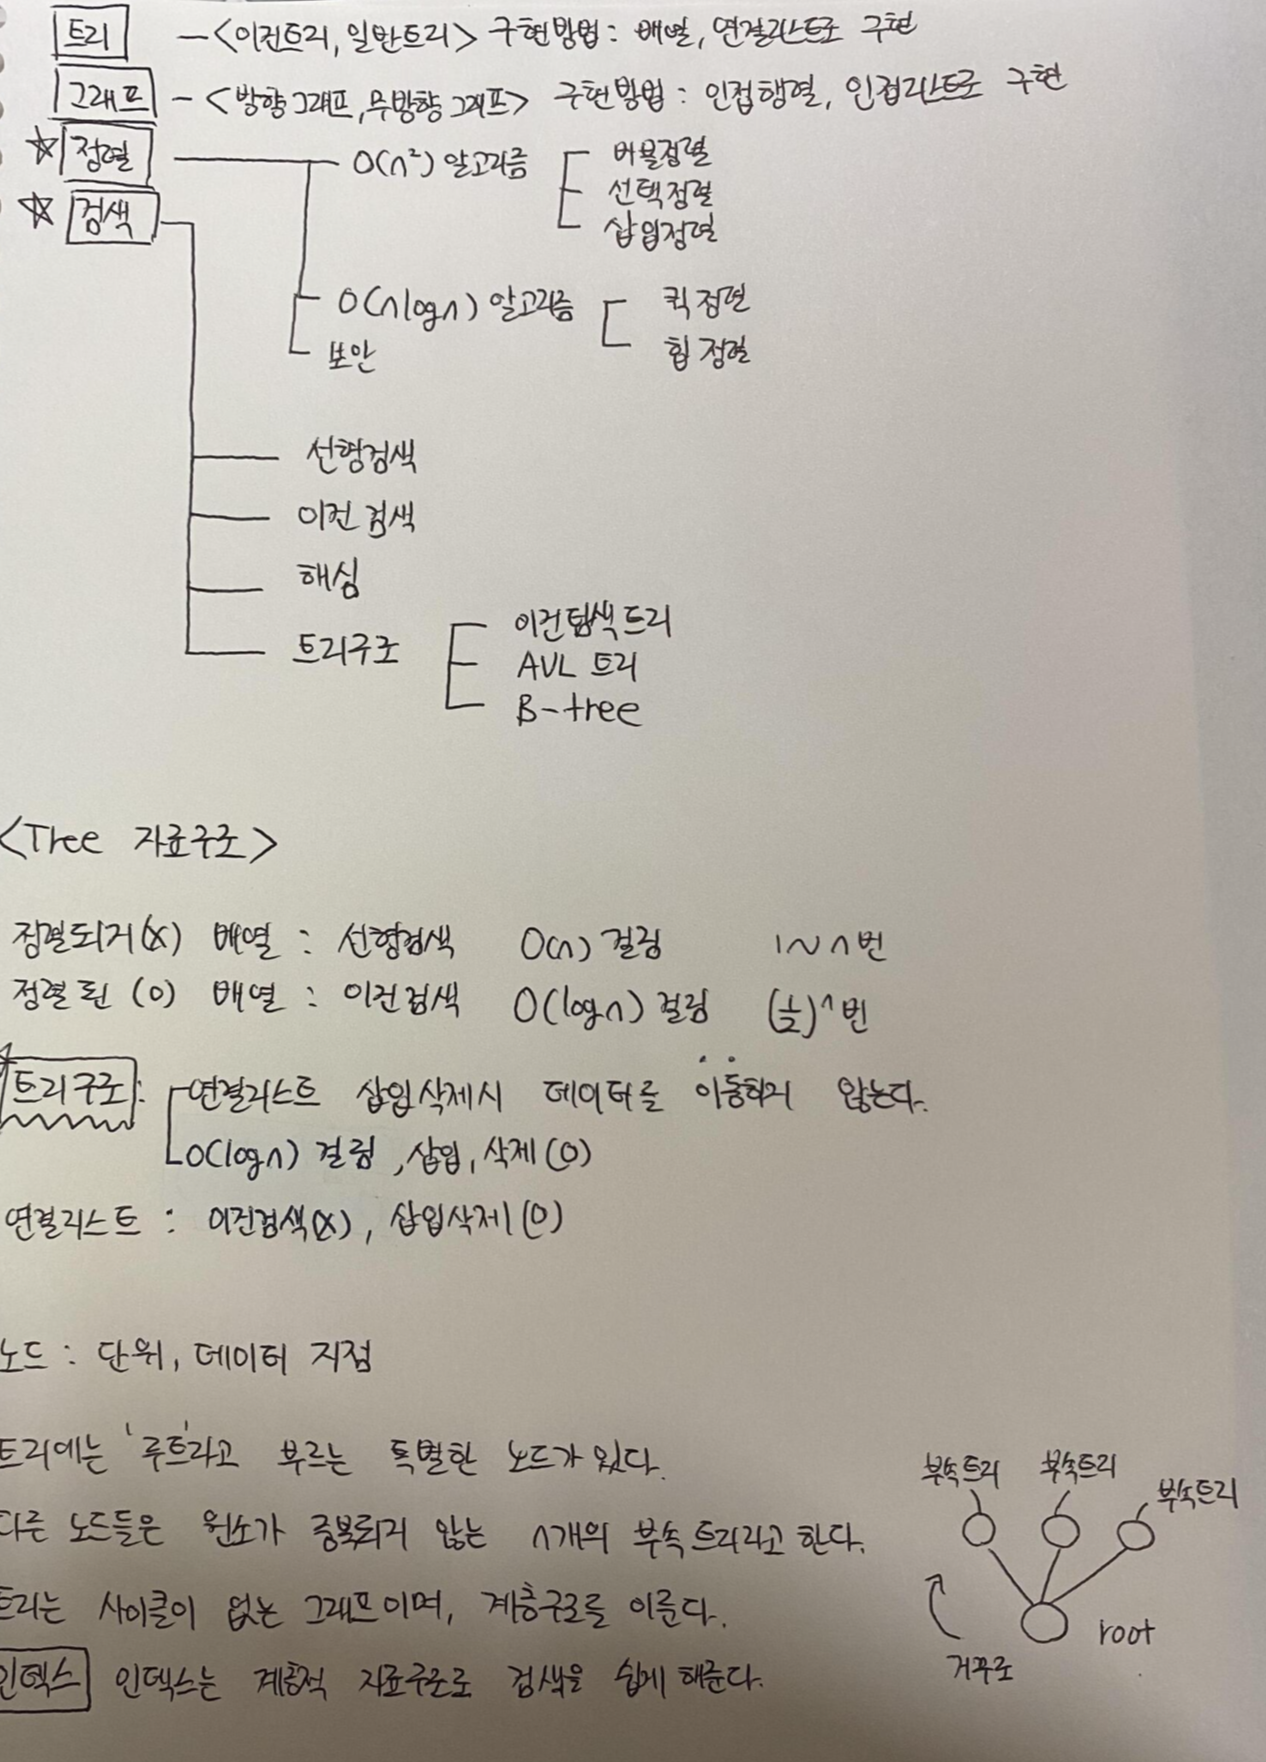 트리 - <이진트리, 일반트리> 구현방법 : 배열, 연결리스트로 구현
그래프 - <방향그래프, 무방향 그래프> 구현방법 : 인접행열, 인접리스트로 구현
☆ 정렬
O(n²) 알고리즘
버블정렬
선택정렬
삽입정렬
☆ 검색
O(nlogn) 알고리즘
퀵정렬
힙정렬
보안
선형검색
이진검색
해싱
트리구조
이진탐색트리
AVL 트리
B-tree
<Tree 자료구조>
정렬되지(x) 배열 : 선형검색 O(n) 걸림 1~n번
정렬된 (O) 배열 : 이진검색 O(logn) 걸림 (1/2)^n번
트리구조: 연결리스트 삽입삭제시 데이터를 이동하지 않는다.
O(logn) 걸림, 삽입, 삭제(O)
연결리스트 : 이진검색(x), 삽입삭제(O)
노드 : 단위, 데이터 지점
트리에는 '루트'라고 부르는 특별한 노드가 있다.
다른 노드들은 원소가 중복되지 않는 n개의 부속트리라고 한다.
트리는 사이클이 없는 그래프이며, 계층구조를 이룬다.
인덱스 인덱스는 계층적 자료구조로 검색을 쉽게 해준다.
부속트리 부속트리 부속트리
root
거꾸로